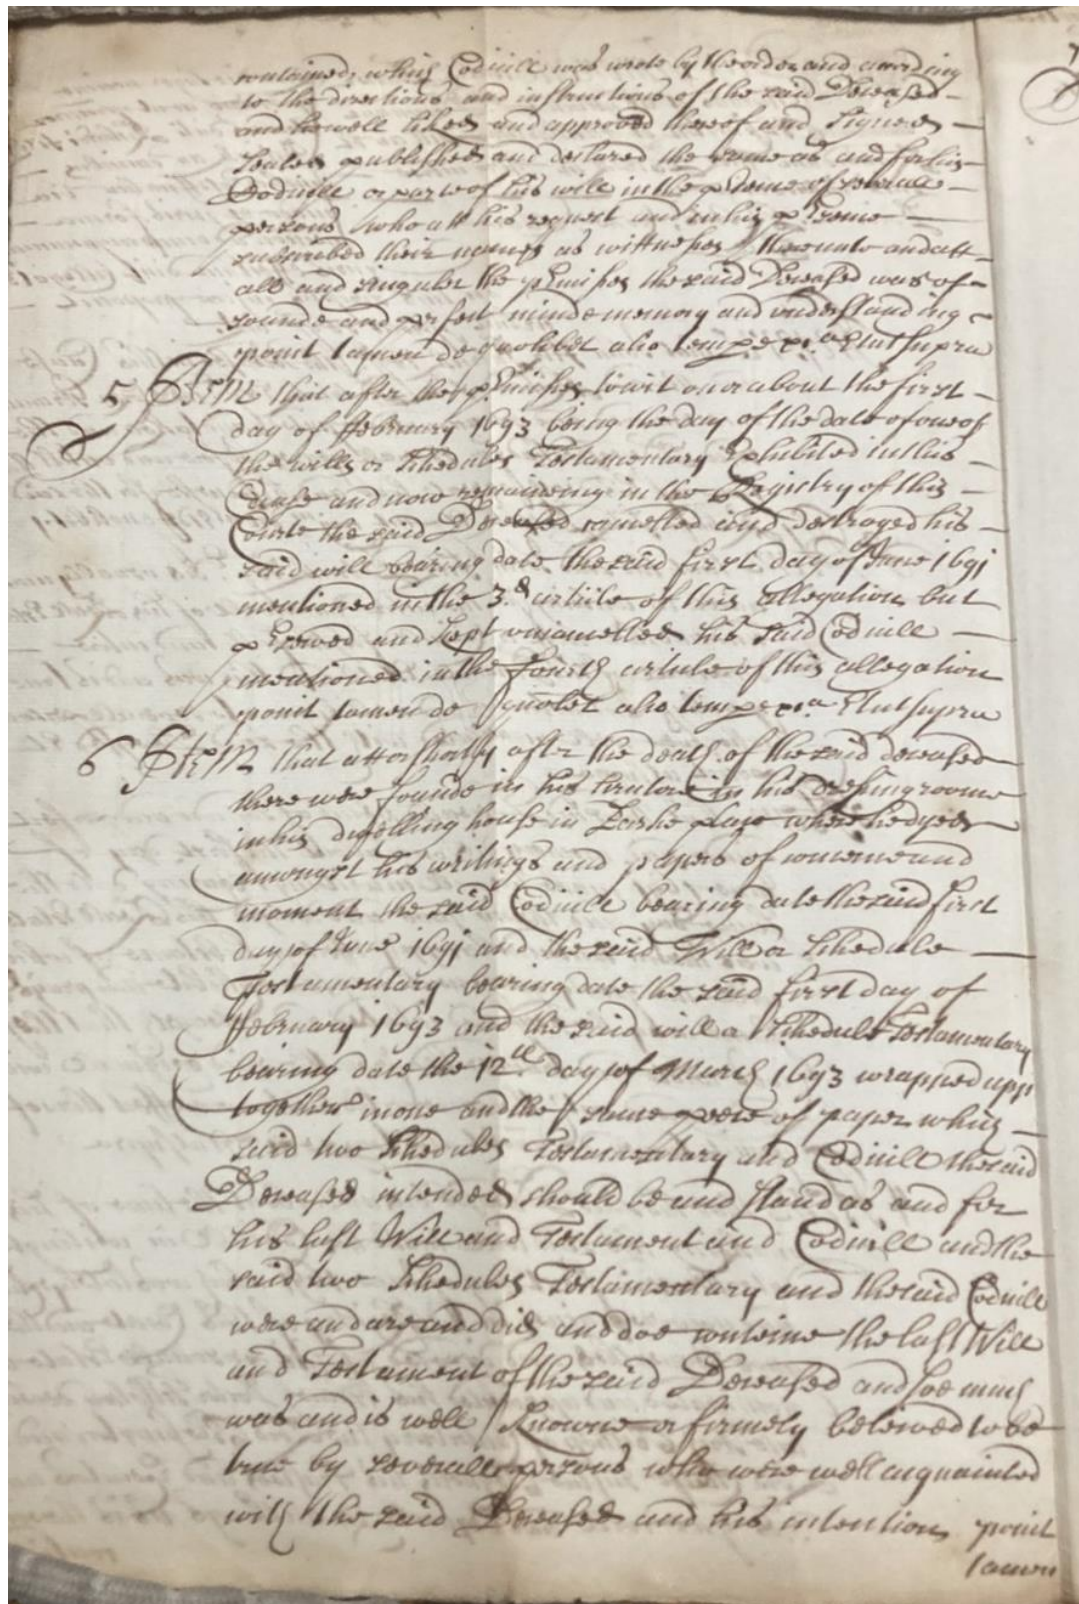 contained, which Codicill was wrote by the order and according
to the directions and instructions of the said Deceased
and hee well liked and approved thereof and Signed
Sealed published and declared the same as and for his
Codicill or parte of his will in the p̱sence of severall
persons who att his request and in his p̱sence
subscribed their names as wittnesses thereunto and att
all and singuler the p̱misses the said Deceased was of
sounde and perfect minde memory and understanding
ponit tamen de quolibet alio temp̱e p̱ut supra
5 Item that after the p̱misses to wit on or about the first
day of February 1693 being the day of the date of one of
the wills or Schedules Testamentary Exhibited in this
Cause and now remaineing in the Registry of this
Courte the said Deceased cancelled and destroyed his
said will bearing date the said first day of June 1691
mentioned in the 3.d article of this allegation but
p̱served and kept uncancelled his said Codicill
mentioned in the fourth article of this allegation
ponit tamen de quolibet alio temp̱e p̱ut supra
6 Item that att or shortly after the death of the said deceased
there were founde in his Scrutore in his dressing roome
in his dwelling house in place where he dyed
amongst his writings and papers of concerne and
moment the said Codicill bearing date the said first
day of June 1691 and the said Will or Schedule
Testamentary bearing date the said first day of
February 1693 and the said will or Schedule Testamentary
bearing date the 12th day of March 1693 wrapped upp
together in one and the same peece of paper which
said two Schedules Testamentary and Codicill the said
Deceased intended should be and stand as and for
his last Will and Testament and Codicill and the
said two Schedules Testamentary and the said Codicill
were and are and did and doe conteine the last Will
and Testament of the said Deceased and soe much
was and is well knowne or firmely beleived to be
true by severall persons who were well acquainted
with the said Deceased and his intention ponit
tamen